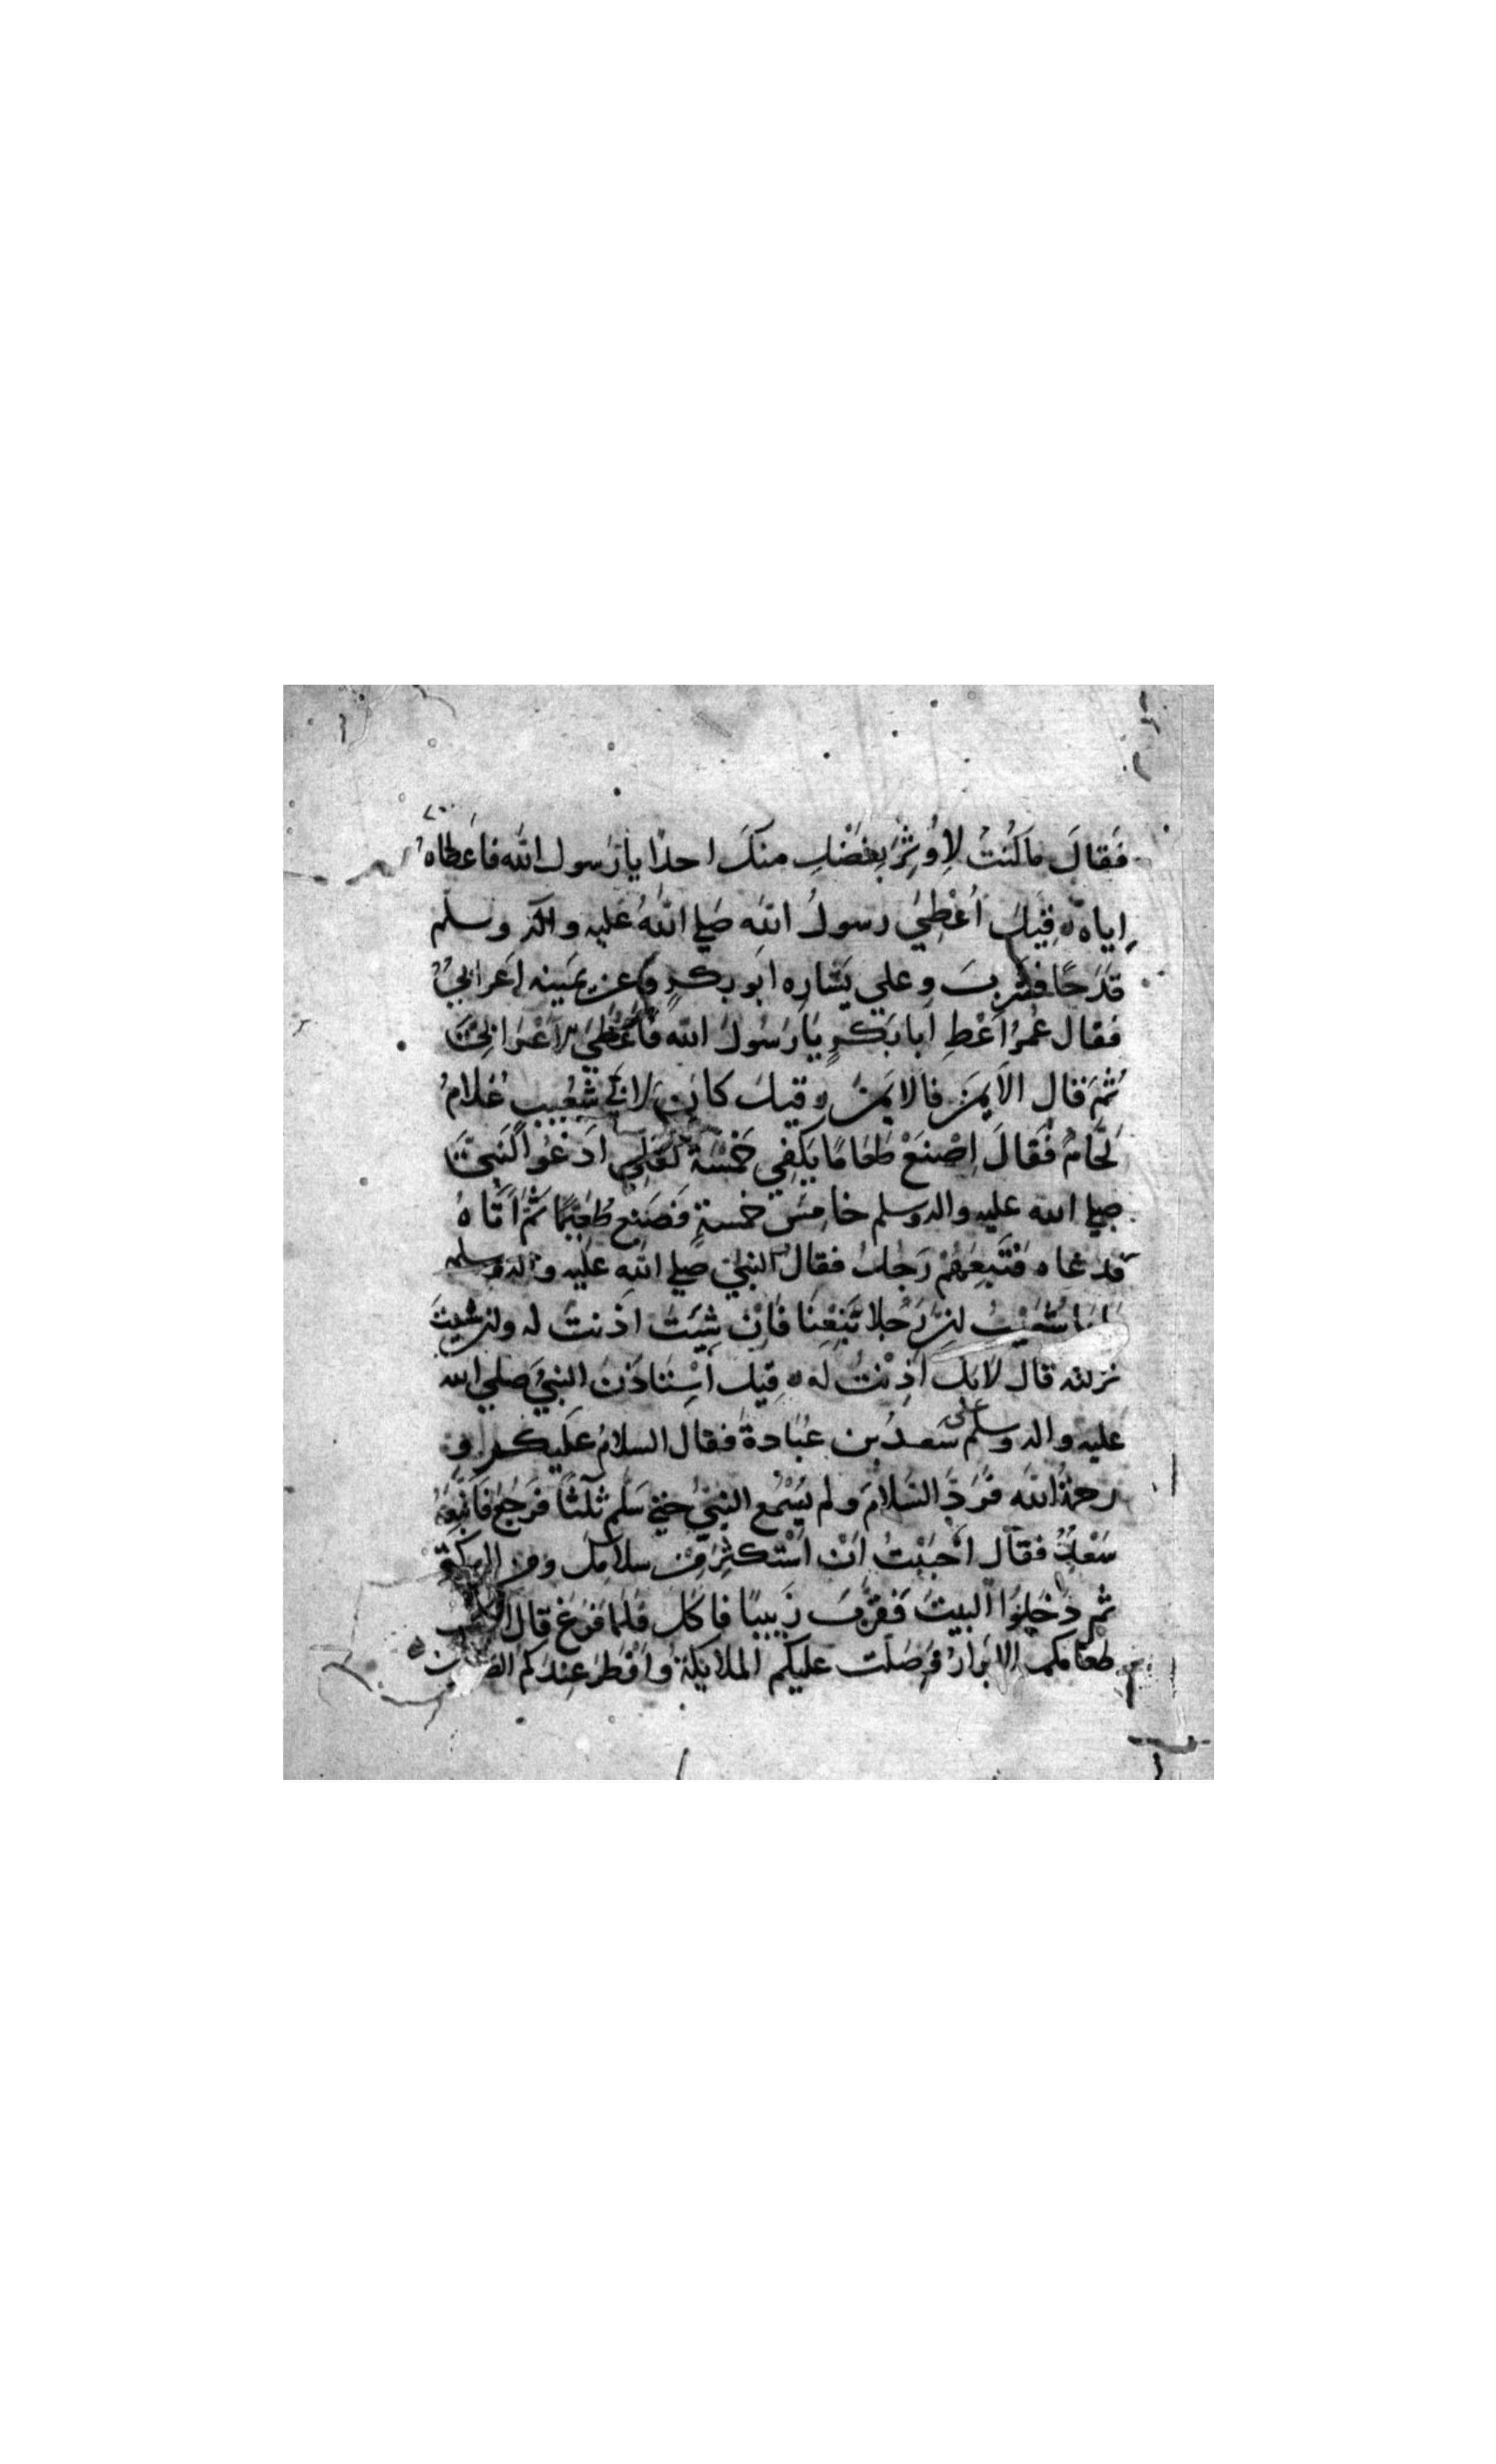 فَقالَ ما كُنتُ لأُوثِرَ بِفَضْلٍ منكَ احدًا يا رَسول الله فاعطاهُ
اياه قيلَ أُعْطِيَ رسولُ الله صَلي اللهُ عليه واله وسلم
قدَحًا فشربَ وعلي يَسَارِه ابو بكرٍ وعن يمينه اعرابيٌ
فقال عُمَرُ اَعْطِ ابا بَكرٍ يَا رَسُولَ الله فاَعْطَي الاعْرابيَّ
ثُمَّ قال الاَيمنَ فالايمنَ قيلَ كان لابي شُعَيبٍ غُلامٌ
لَحَّامٌ فَقالَ اِصْنَعْ طعَامًا يَكفِي خَمْسَة لَعَلِي ادْعُوا النَبيَّ
صلي الله عليه واله وسلم خامِسَ خمسةٍ فَصَنع طُعَيّمًا ثمَّ اَتَاهُ
فدعاه فتَبِعَهُمْ رَجلٌ فقالَ النبيُّ صلي الله عليه واله وسلم
يا ابا شُعَيْبٍ اِنَّ رَجُلا تَبِعْنَا فَاِنْ شِيْتَ اذنتَ له وان شيتَ
تركته قال لا بل اذِنْتُ له قيل اسْتَاذَنَ النبيُّ صلي الله
عليه واله وسلم على سَعد بن عُبَادةَ فقال السلامُ عَليكم و
رحمةُ الله فَرَدَّ السَلامَ ولم يُسْمعِ النبيَّ حتي سَلّم ثلثًا فرجعَ فَاتبَعَهُ
سَعْدٌ فقال اَحْبَبْتُ اَنْ اَسْتكثِرَ مِن سلامِكَ ومن البركة
ثم دَخلوُا البيتَ فَقَرَّبَ زَبيبًا فاكل فلما فرغ قال
طعَامَكم الابرارُ وصَلَّتْ عليكم الملايكةُ واَفْطَرَ عِندكم